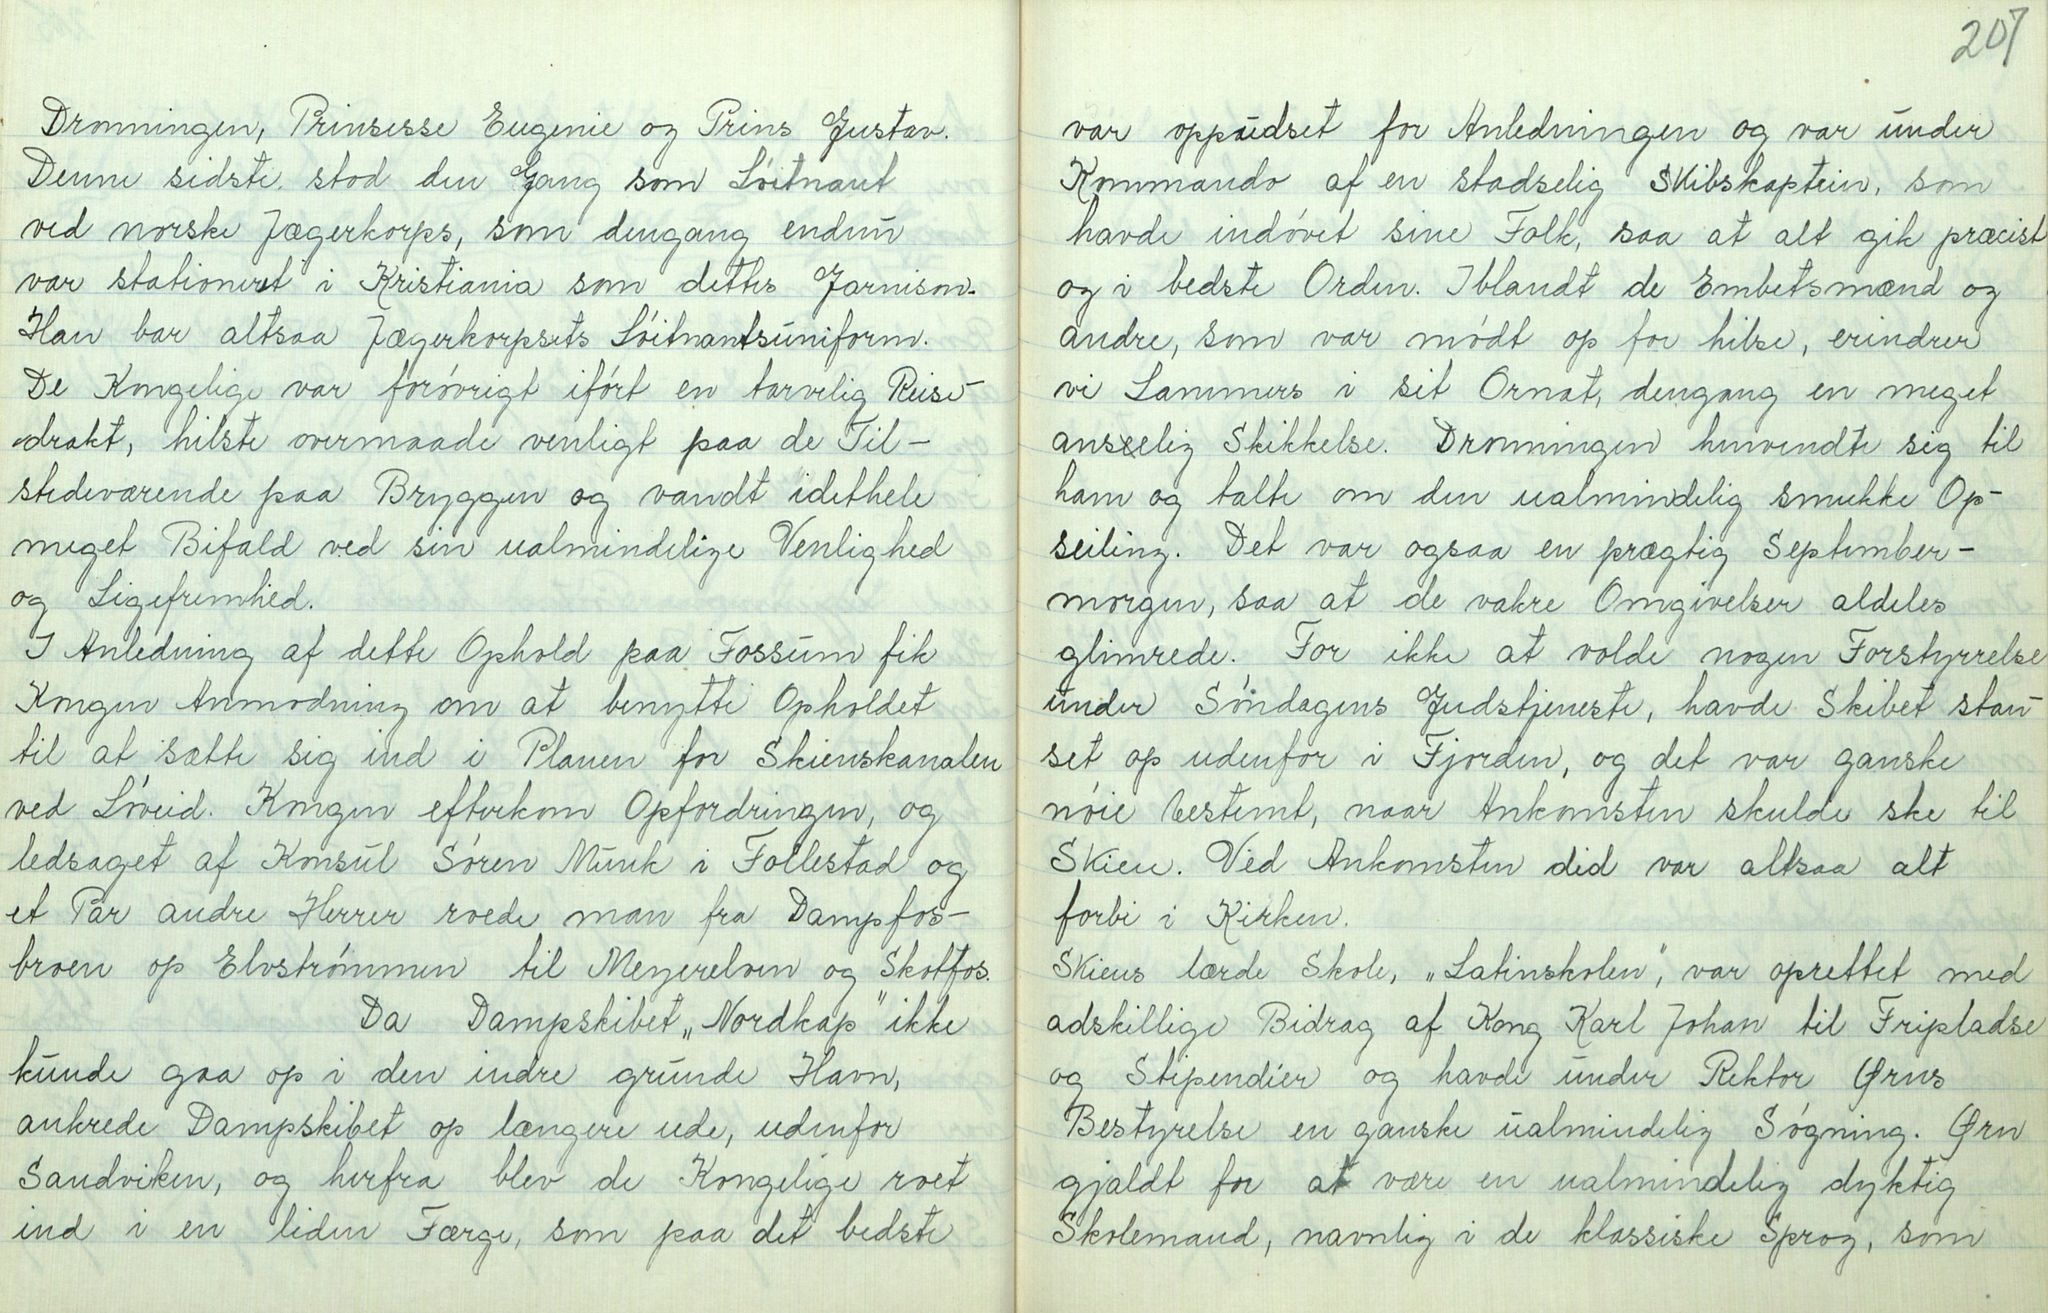 Dronningen, Prinsesse Eugenie og Prins Gustav.
Denne sidste stod den Gang som Løitnant
ved norske Jægerkorps, som dengang endnu
var stationeret i Kristiania som dettes Garnison.
Han bar altsaa Jægerkorpsets Løitnantsuniform.
De Kongelige var forøvrigt iført en tarvelig Reise-
drakt, hilste overmaade venligt paa de Til-
stedeværende paa Bryggen og vandt idethele
meget Bifald ved sin ualmindelige Venlighed
og Ligefremhed.
I Anledning af dette Ophold paa Fossum fik
Kongen Anmodning om at benytte Opholdet
til at sætte sig ind i Planen for Skienskanalen
ved Løveid. Kongen efterkom Opfordringen, og
ledsaget af Konsul Søren Munk i Follestad og
et Par andre Herrer roede man fra Dampfos-
broen op Elvstrømmen til Meyerelven og Skotfos.
Da Dampskibet „Nordkap" ikke
kunde gaa op i den indre grunde Havn,
ankrede Dampskibet op længere ude, udenfor
Sandviken, og herfra blev de Kongelige roet
ind i en liden Færge, som paa det bedste
207
var oppudset for Anledningen og var under
Kommando af en stadselig Skibskaptein, som
havde indøvet sine Folk, saa at alt gik præcist
og i bedste Orden. Iblandt de Embetsmænd og
andre, som var mødt op for hilse, erindrer
vi Lammers i sit Ornat, dengang en meget
anseelig Skikkelse. Dronningen henvendte sig til
ham og talte om den ualmindelig smukke Op-
seiling. Det var ogsaa en prægtig September-
morgen, saa at de vakre Omgivelser aldeles
glimrede. For ikke at volde nogen Forstyrrelse
under Søndagens Gudstjeneste, havde Skibet stan-
set op udenfor i Fjorden, og det var ganske
nøie bestemt, naar Ankomsten skulde ske til
Skien. Ved Ankomsten did var altsaa alt
forbi i Kirken.
Skiens lærde Skole, „Latinskolen", var oprettet med
adskillige Bidrag af Kong Karl Johan til Fripladse
og Stipendier og havde under Rektor Ørns
Bestyrelse en ganske ualmindelig Søgning. Ørn
gjaldt for at være en ualmindelig dyktig
Skolemand, navnlig i de klassiske Sprog, som